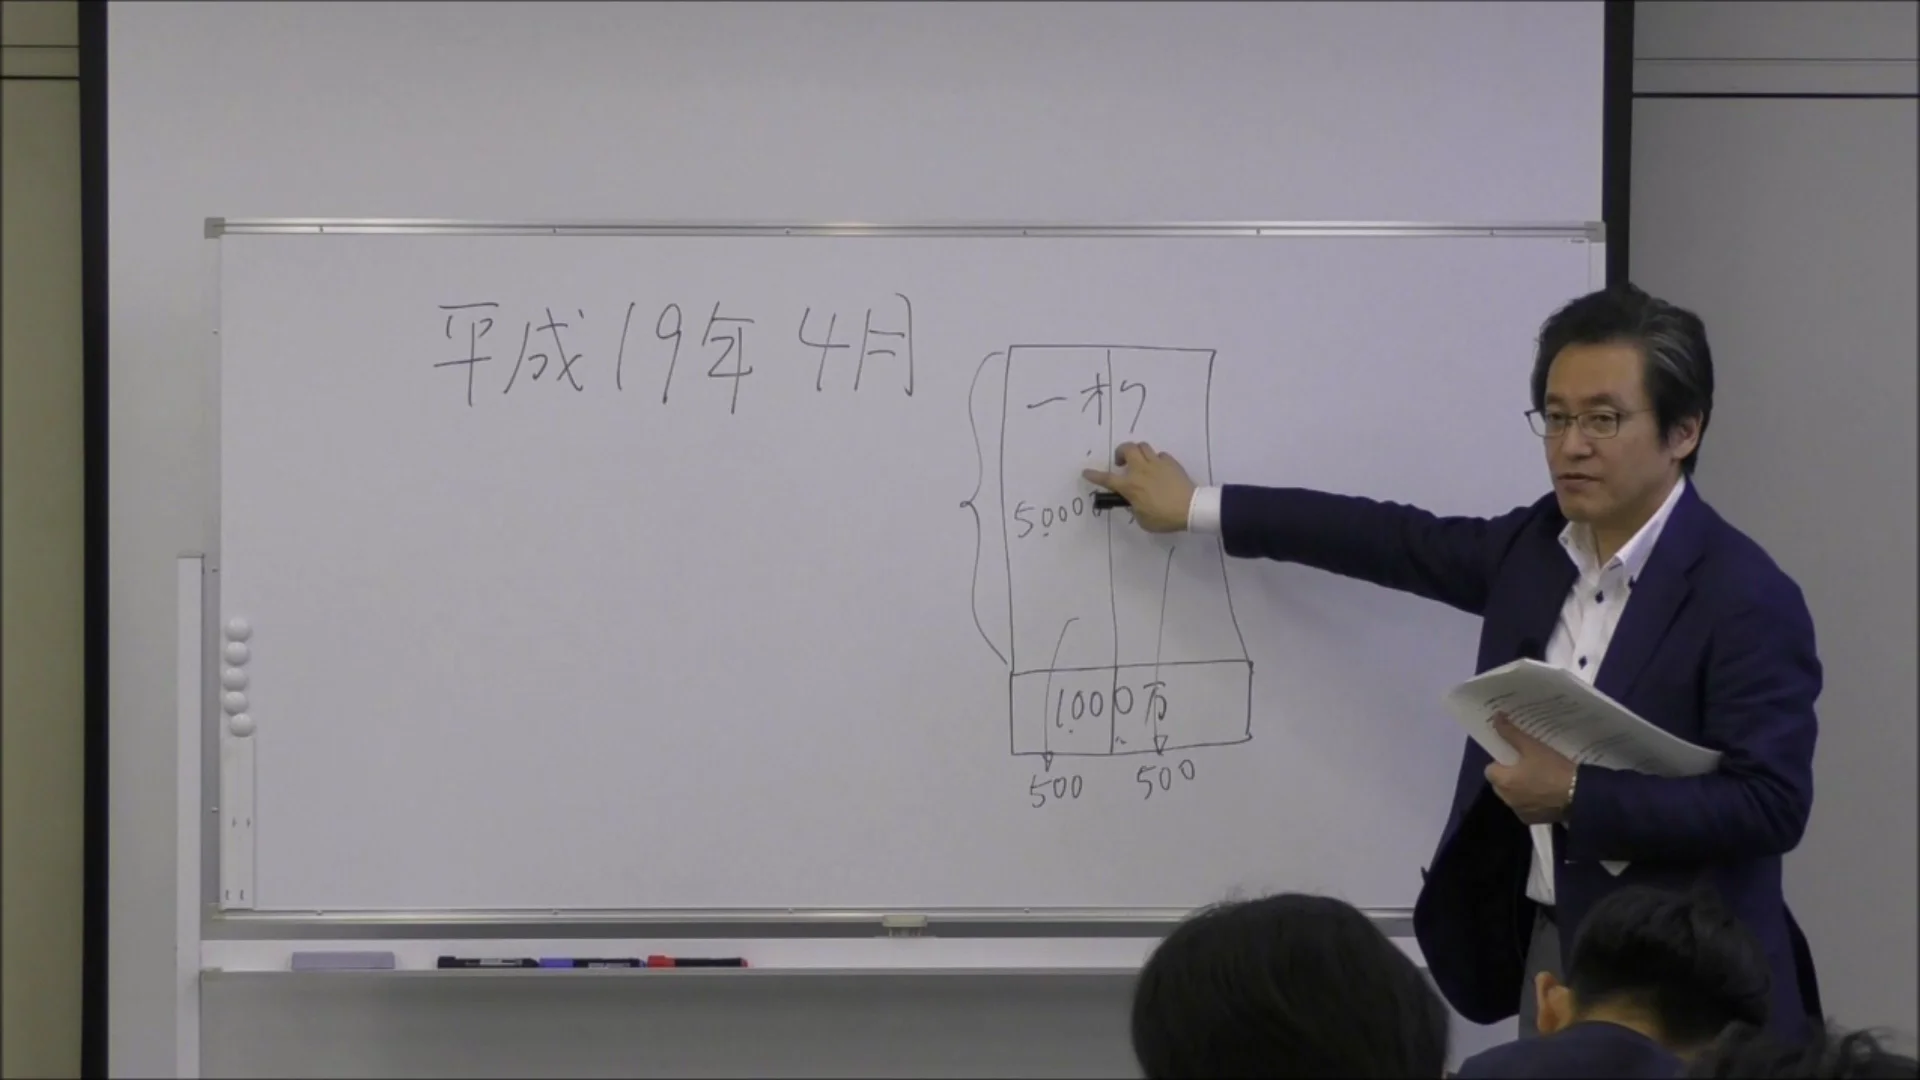 平成19年4月
一朽
5000
1000万
500 500